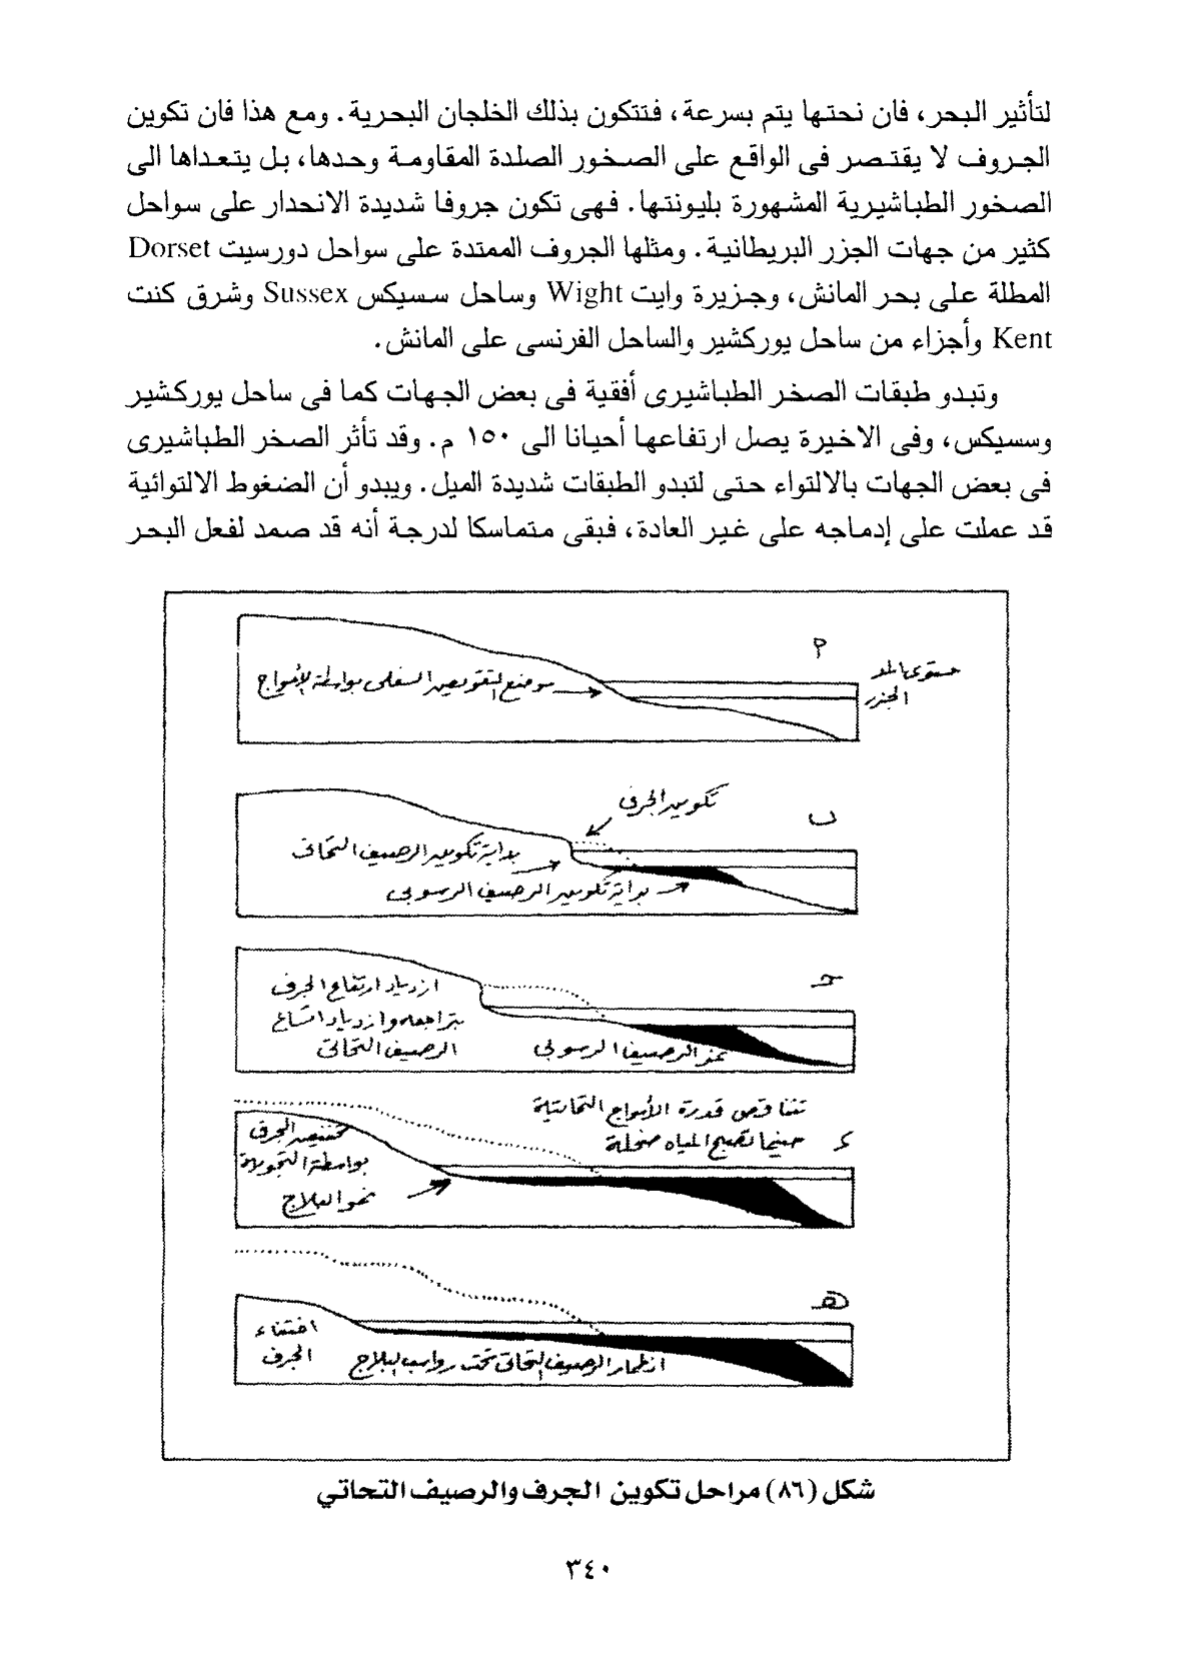 لتأثير البحر، فان نحتها يتم بسرعة، فتتكون بذلك الخلجان البحرية. ومع هذا فان تكوين
الجروف لا يقتصر فى الواقع على الصخور الصلدة المقاومة وحدها، بل يتعداها الى
الصخور الطباشيرية المشهورة بليونتها. فهى تكون جروفا شديدة الانحدار على سواحل
كثير من جهات الجزر البريطانية. ومثلها الجروف الممتدة على سواحل دورسيت Dorset
المطلة على بحر المانش، وجزيرة وايت Wight وساحل سسيكس Sussex وشرق كنت
Kent وأجزاء من ساحل يوركشير والساحل الفرنسى على المانش.
وتبدو طبقات الصخر الطباشيرى أفقية فى بعض الجهات كما فى ساحل يوركشير
وسسيكس، وفى الاخيرة يصل ارتفاعها أحيانا الى ١٥٠ م. وقد تأثر الصخر الطباشيرى
فى بعض الجهات بالالتواء حتى لتبدو الطبقات شديدة الميل. ويبدو أن الضغوط الالتوائية
قد عملت على إدماجه على غير العادة، فبقى متماسكا لدرجة أنه قد صمد لفعل البحر
م
مستوى المد
الجزر
موضع التقويض السفلى بواسطة الأمواج
ب
تكوين الجرف
بداية تكوين الرصيف التحاتى
بداية تكوين الرصيف الرسوبى
حـ
ازدياد ارتفاع الجرف
بتراجعه وازدياد اتساع
الرصيف التحاتى
نمو الرصيف الرسوبى
تتناقص قدرة الأمواج التحاتية
حينما تصبح المياه ضحلة
ء
تخفيض الجرف
بواسطة التجوية
نمو البلاج
هـ
اختفاء
الجرف
انطمار الرصيف التحاتى تحت رواسب البلاج
شكل (٨٦) مراحل تكوين الجرف والرصيف التحاتي
٣٤٠